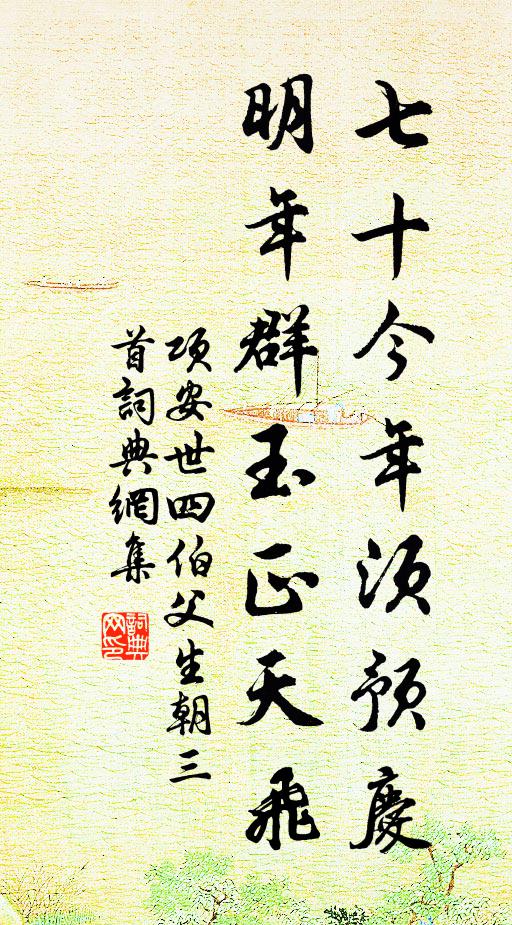 七十今年須預慶
明年群玉正天飛
項安世四伯父生朝三
首詞典網集
詞典
网印